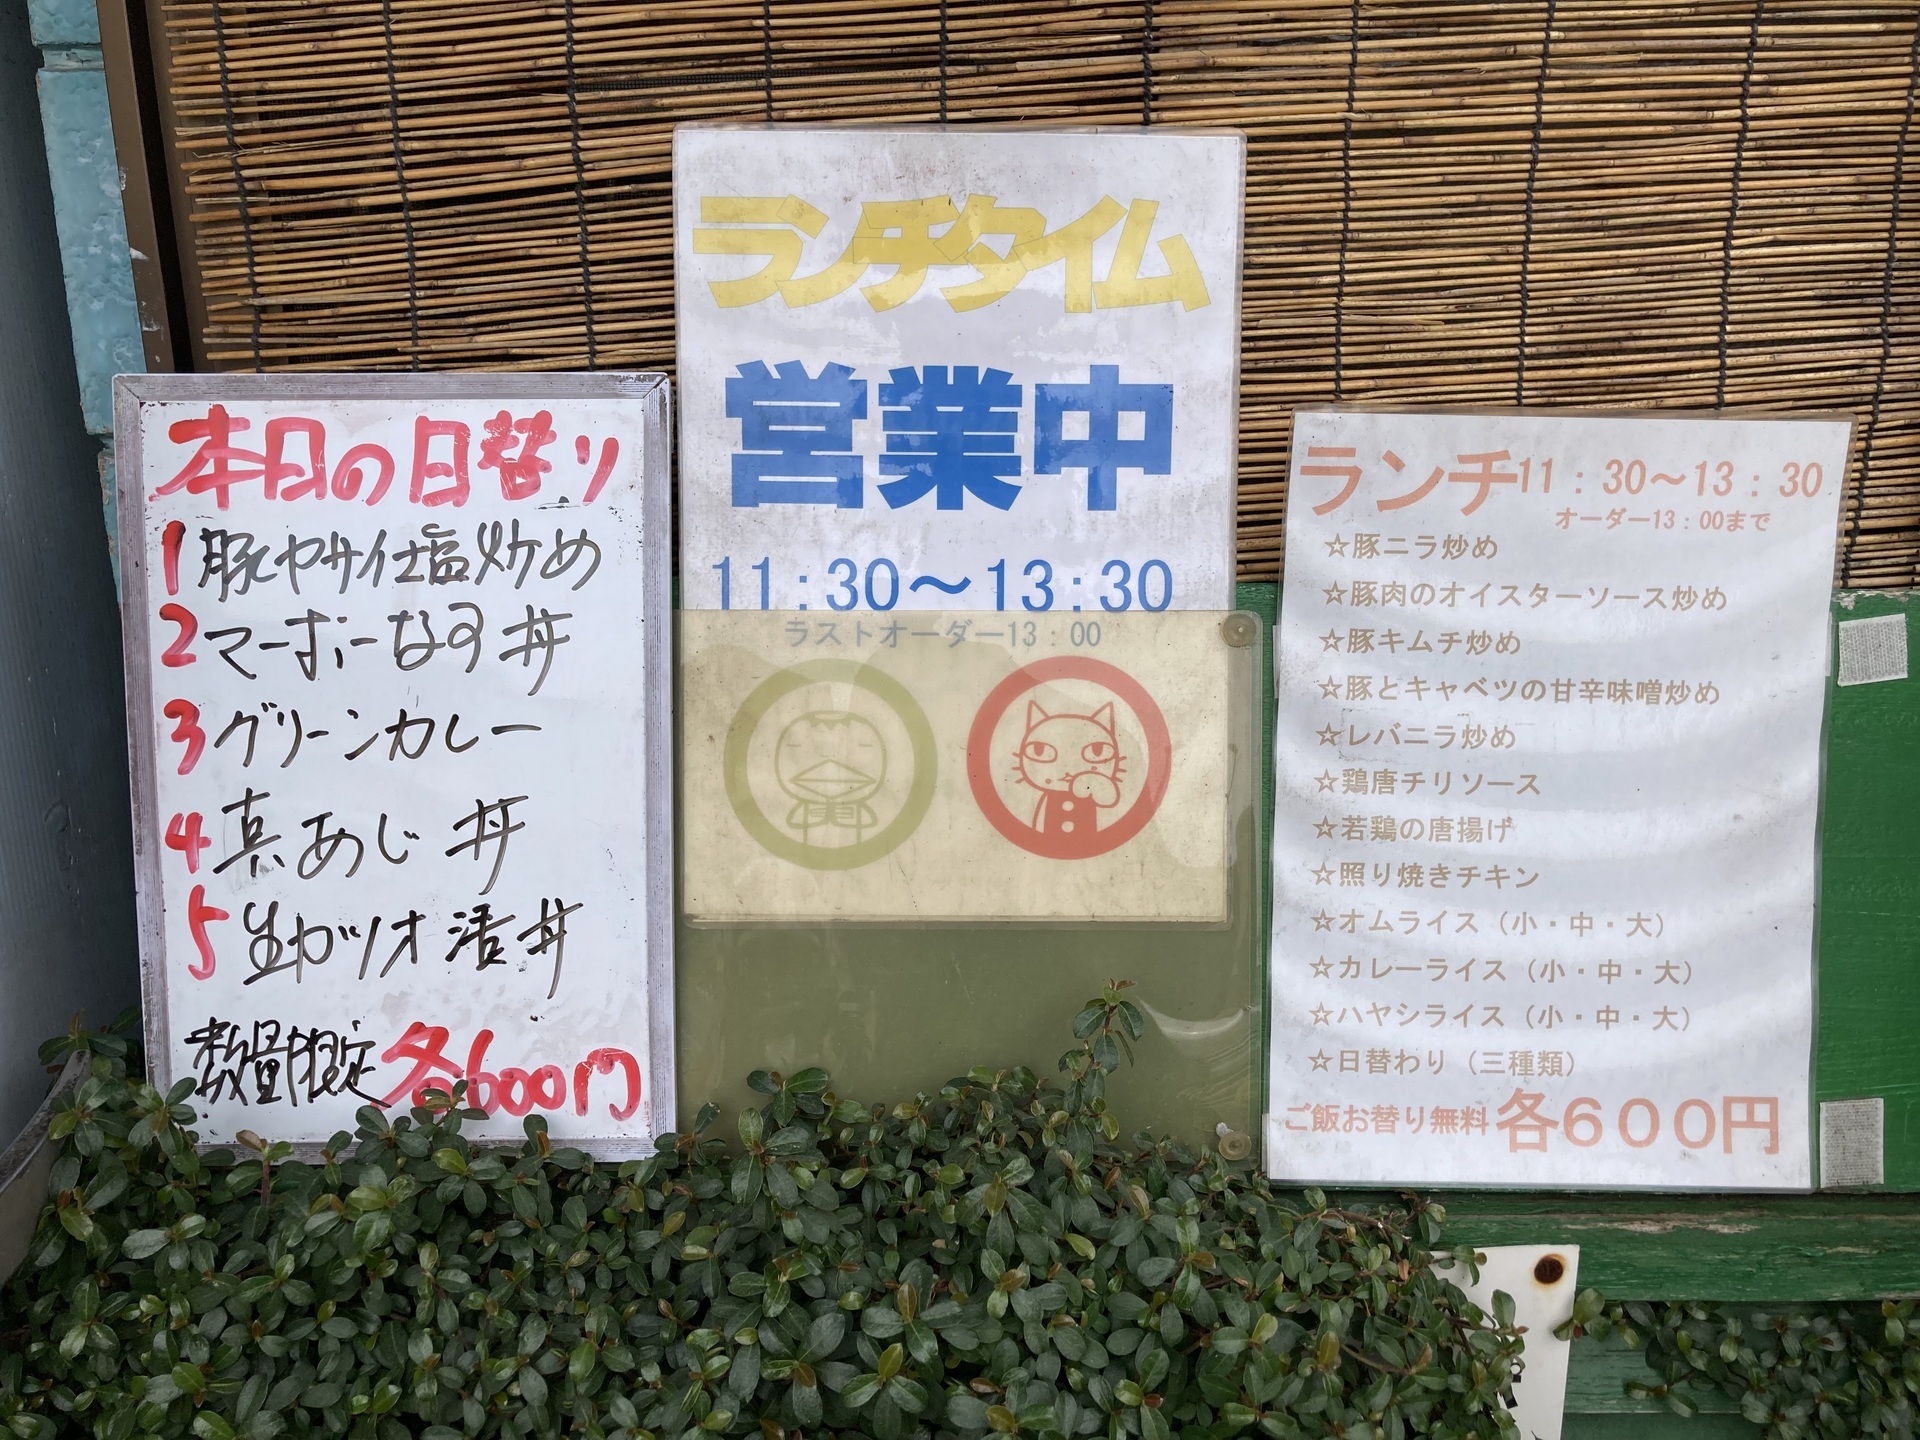 本日の日替り
1 豚ヤサイ塩炒め
2 マーボーなす丼
3 グリーンカレー
4 真あじ丼
5 生ガツオ漬丼
数量限定 各600円
ランチタイム
営業中
11:30～13:30
ラストオーダー13:00
ランチ11:30～13:30
オーダー13:00まで
☆豚ニラ炒め
☆豚肉のオイスターソース炒め
☆豚キムチ炒め
☆豚とキャベツの甘辛味噌炒め
☆レバニラ炒め
☆鶏唐チリソース
☆若鶏の唐揚げ
☆照り焼きチキン
☆オムライス（小・中・大）
☆カレーライス（小・中・大）
☆ハヤシライス（小・中・大）
☆日替わり（三種類）
ご飯お替り無料 各６００円